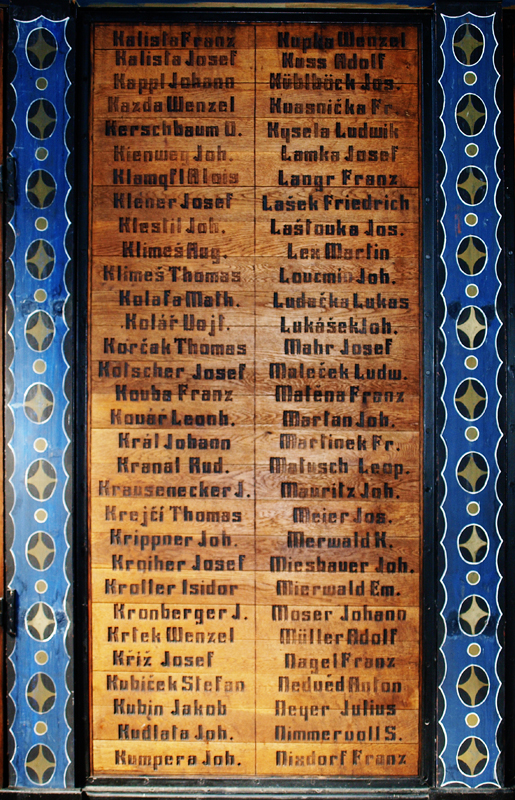 Kalista Franz
Kalista Josef
Kappl Johann
Kazda Wenzel
Kerschbaum O.
Kienwey Joh.
Klamqfl Alois
Kléner Josef
Klestil Joh.
Klimeš Aug.
Klimeš Thomas
Kolafa Math.
Kolář Vojt.
Korčak Thomas
Kötscher Josef
Kouba Franz
Kovář Leonh.
Král Johann
Kranat Rud.
Krausenecker J.
Krejčí Thomas
Krippner Joh.
Kroiher Josef
Kroller Isidor
Kronberger J.
Krtek Wenzel
Kříž Josef
Kubiček Stefan
Kubin Jakob
Kudlata Joh.
Kumpera Joh.
Kupka Wenzel
Kuss Adolf
Küblböck Jos.
Kvasnička Fr.
Kysela Ludwik
Lamka Josef
Langr Franz
Lašek Friedrich
Laštouka Jos.
Lex Martin
Joh.
Ludačka Lukas
Lukášek Joh.
Mahr Josef
Maleček Ludw.
Maténa Franz
Martan Joh.
Martinek Fr.
Matusch Leop.
Mauritz Joh.
Meier Jos.
Merwald K.
Miesbauer Joh.
Mierwald Em.
Moser Johann
Müller Adolf
Nagel Franz
Nedvéd Anton
Neyer Julius
Nimmervoll S.
Nixdorf Franz